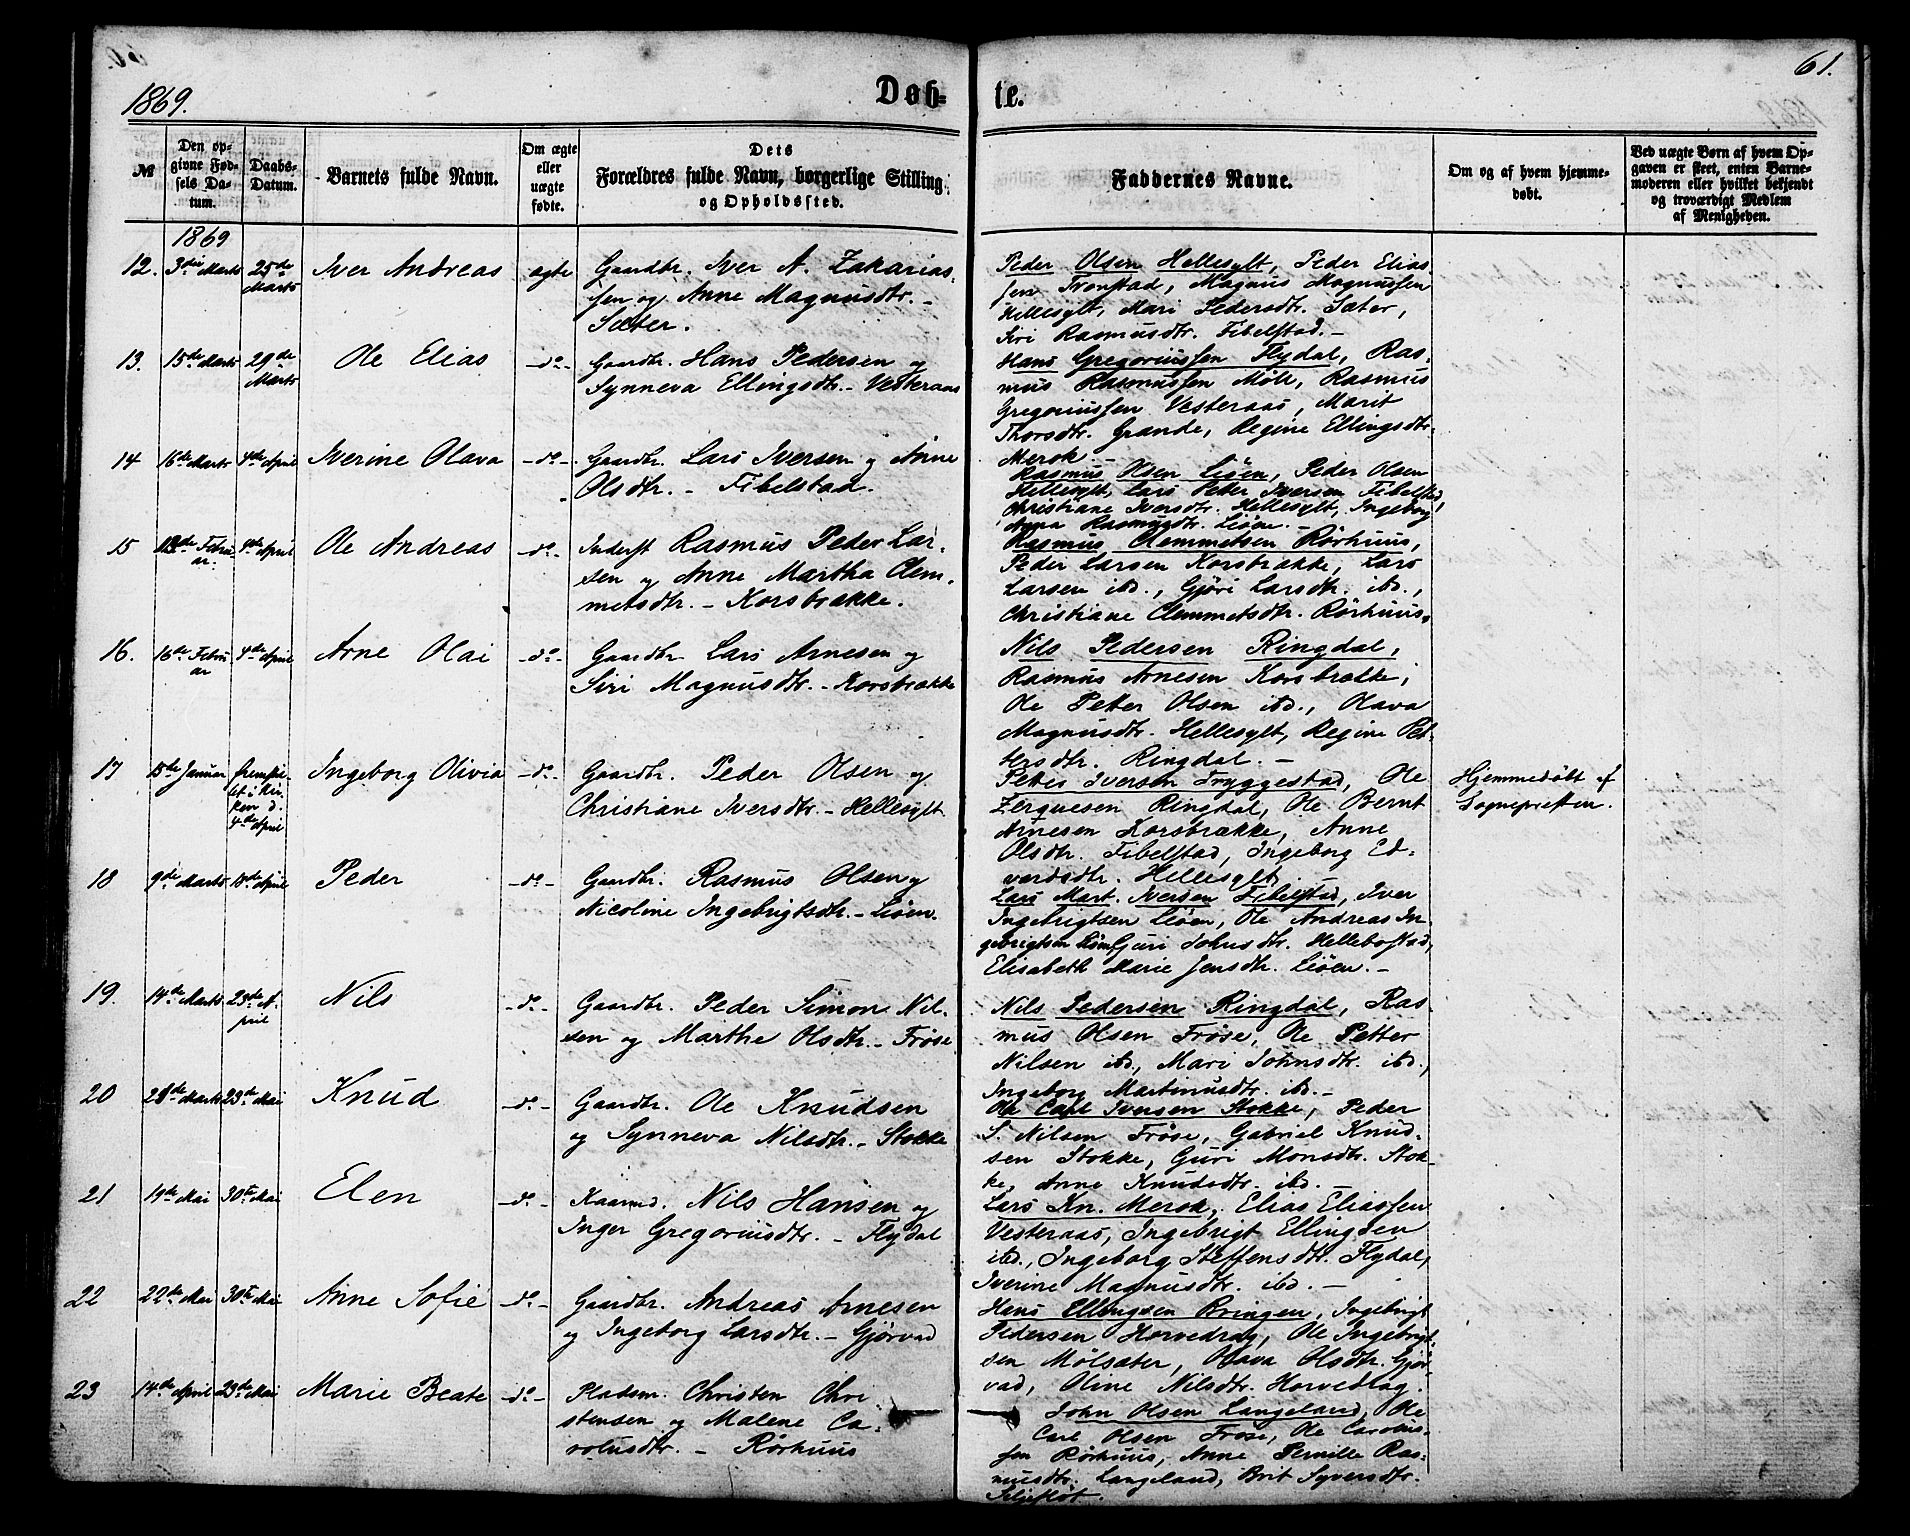 61.
1869.
Døb-
te.
№
Den op-
givne Fød-
sels Da-
tum.
Daabs-
Datum.
Barnets fulde Navn.
Om ægte
eller
uægte
fødte.
Dets
Forældres fulde Navn, borgerlige Stilling
og Opholdssted.
Faddernes Navne.
Om og af hvem hjemme-
døbt.
Ved uægte Børn af hvem Op-
gaven er skeet, enten Barne-
moderen eller hvilket bekjendt
og troværdigt Medlem
af Menigheden.
1869
12. 3die Marts 25de Marts Iver Andreas ægte
Gaardbr. Iver A. Zakarias-
sen og Anne Magnusdtr. -
Sæter.
Peder Olsen Hellesylt, Peder Elias-
sen Tronstad, Magnus Magnussen
Hellesylt, Mari Pedersdtr. Sæter,
Siri Rasmusdtr. Fibelstad. -
13. 15de Marts 29de Marts Ole Elias -do-
Gaardbr. Hans Pedersen og
Synneva Ellingsdtr. - Vesteraas
Hans Gregoriussen Flydal, Ras-
mus Rasmussen Møll, Rasmus
Gregoriussen Vesteraas, Marit
Thorsdtr. Grande, Regine Ellingsdtr.
Merok. -
14 16de Marts 4de April Iverine Olava -do-
Gaardbr. Lars Iversen og Anne
Olsdtr. - Fibelstad.
Rasmus Olsen Liøen, Peder Olsen
Hellesylt, Lars Peter Iversen Fibelstad,
Christiane Iversdtr. Hellesylt, Ingeborg
Anna Rasmusdtr. Liøen. -
15 Febru-
ar. 4de April Ole Andreas -do-
Inderst Rasmus Peder Lar-
sen og Anne Martha Clem-
metsdtr. - Korsbrække.
Rasmus Clemmetsen Rørhuus,
Peder Larsen Korsbrække, Lars
Larsen ibd., Gjøri Larsdtr. ibd.,
Christiane Clemmetsdtr. Rørhuus.
16. 16de Febru-
ar 4de April Arne Olai -do-
Gaardbr Lars Arnesen og
Siri Magnusdtr. - Korsbrække
Nils Pedersen Ringdal,
Rasmus Arnesen Korsbrække,
Ole Petter Olsen ibd., Olava
Magnusdtr. Hellesylt, Regine Pet-
tersdtr. Ringdal. -
17 15de Januar fremstil-
let i Kir-
ken d.
4de April Ingeborg Olivia -do-
Gaardbr. Peder Olsen og
Christiane Iversdtr. - Hellesylt
Peter Iversen Tryggestad, Ole
Zerquesen Ringdal, Ole Bernt
Arnesen Korsbrække, Anne
Olsdtr. Fibelstad, Ingeborg Ed-
vardsdtr. Hellesylt
Hjemmedøbt af
Sognepresten.
18 9de Marts 18de April Peder -do-
Gaardbr. Rasmus Olsen og
Nicoline Ingebrigtsdtr. - Liøen.
Lars Mart. Iversen Fibelstad, Iver
Ingebrigtsen Liøen, Ole Andreas In-
gebrigtsen Liøen, Guri Johnsdtr. Hellebostad,
Elisabeth Marie Jensdtr. Liøen. -
19. 14de Marts 23de A-
pril Nils -do-
Gaardbr. Peder Simon Nil-
sen og Marthe Olsdtr. - Frøse
Nils Pedersen Ringdal, Ras-
mus Olsen Frøse, Ole Petter
Nilsen ibd, Mari Johnsdtr. ibd.,
Ingeborg Martinusdtr. ibd. -
20 28de Marts 23de Mai Knud -do-
Gaardbr. Ole Knudsen
og Synneva Nilsdtr. - Stokke
Ole Carl Iversen Stokke, Peder
S. Nilsen Frøse, Gabriel Knud-
sen Stokke, Guri Monsdtr. Stok-
ke, Anne Knudsdtr. ibd. -
21 19de Mai 30te Mai Elen -do-
Kaarmd. Nils Hansen og
Inger Gregoriusdtr. - Flydal
Lars Kn. Merok, Elias Eliassen
Vesteraas, Ingebrigt Ellingsen
ibd., Ingeborg Steffensdtr. Flydal,
Iverine Magnusdtr. ibd. -
22 22de Mai 30te Mai Anne Sofie -do-
Gaardbr. Andreas Arnesen
og Ingeborg Larsdtr. - Gjørvad
Hans Ellingsen Bringen, Ingebrigt
Pedersen Horvedrag, Ole Ingebrigt-
sen Mølsæter, Olava Olsdtr. Gjør-
vad, Oline Nilsdtr. Horvedrag.
23 14de April 23de Mai Marie Beate -do-
Pladsm. Christen Chri-
stensen og Malene Ca-
rolusdtr. - Rørhuus
John Olsen Langeland, Ole
Carl Olsen Frøse, Ole Carolus-
sen Rørhuus, Anne Pernille Ras-
musdtr. Langeland, Brit Syversdtr.